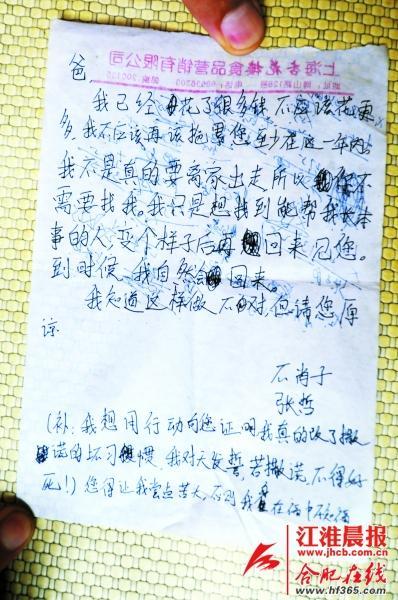 上海杏花楼食品营销有限公司
爸
我已经花了很多钱不应该花更
多,我不应该再该拖累您,至少在这一年内。
我不是真的要离家出走所以你不
需要找我。我只是想找到能帮我长本
事的人,变个样子后再回来见您。
到时候,我自然会回来。
我知道这样做不对,但请您原
谅
不肖子
张哲
(补:我想用行动向您证明我真的改了撒
谎的坏习惯,我对天发誓,若撒谎,不得好
死!)您得让我尝点苦头,否则我在
江淮晨报
www.jhcb.com.cn
合肥在线
www.hf365.com